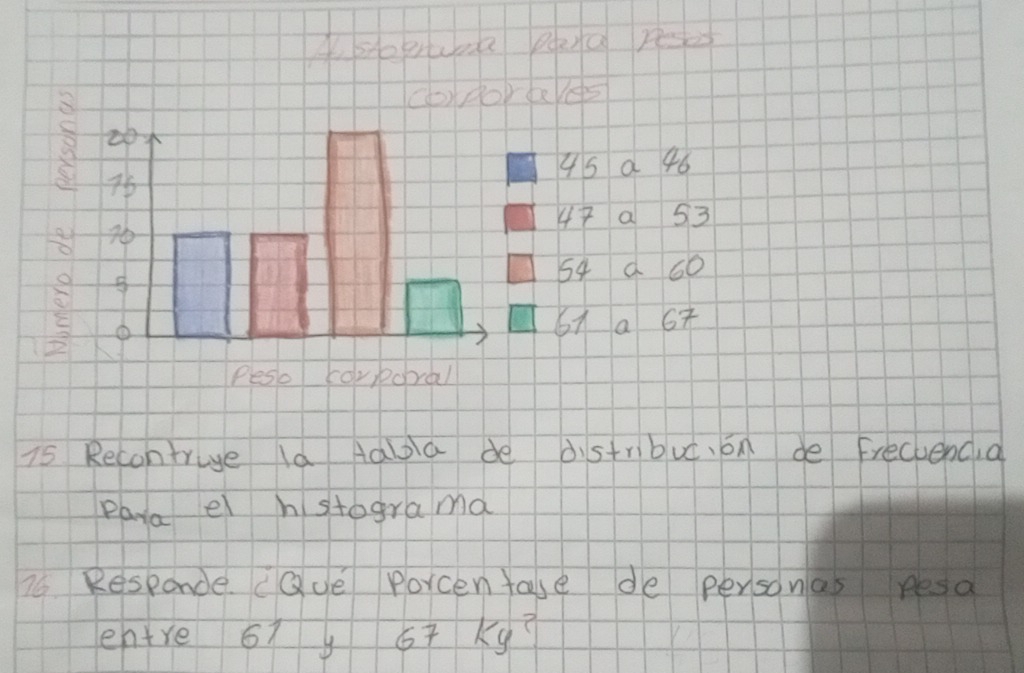 Histograma para Pesos
corporales
Número de personas
20
15
10
5
0
45 a 46
47 a 53
54 a 60
61 a 67
Peso corporal
15 Recontruye la tabla de distribución de frecuencia
para el histograma
16 Responde. ¿Qué Porcentaje de personas pesa
entre 61 y 67 Kg?